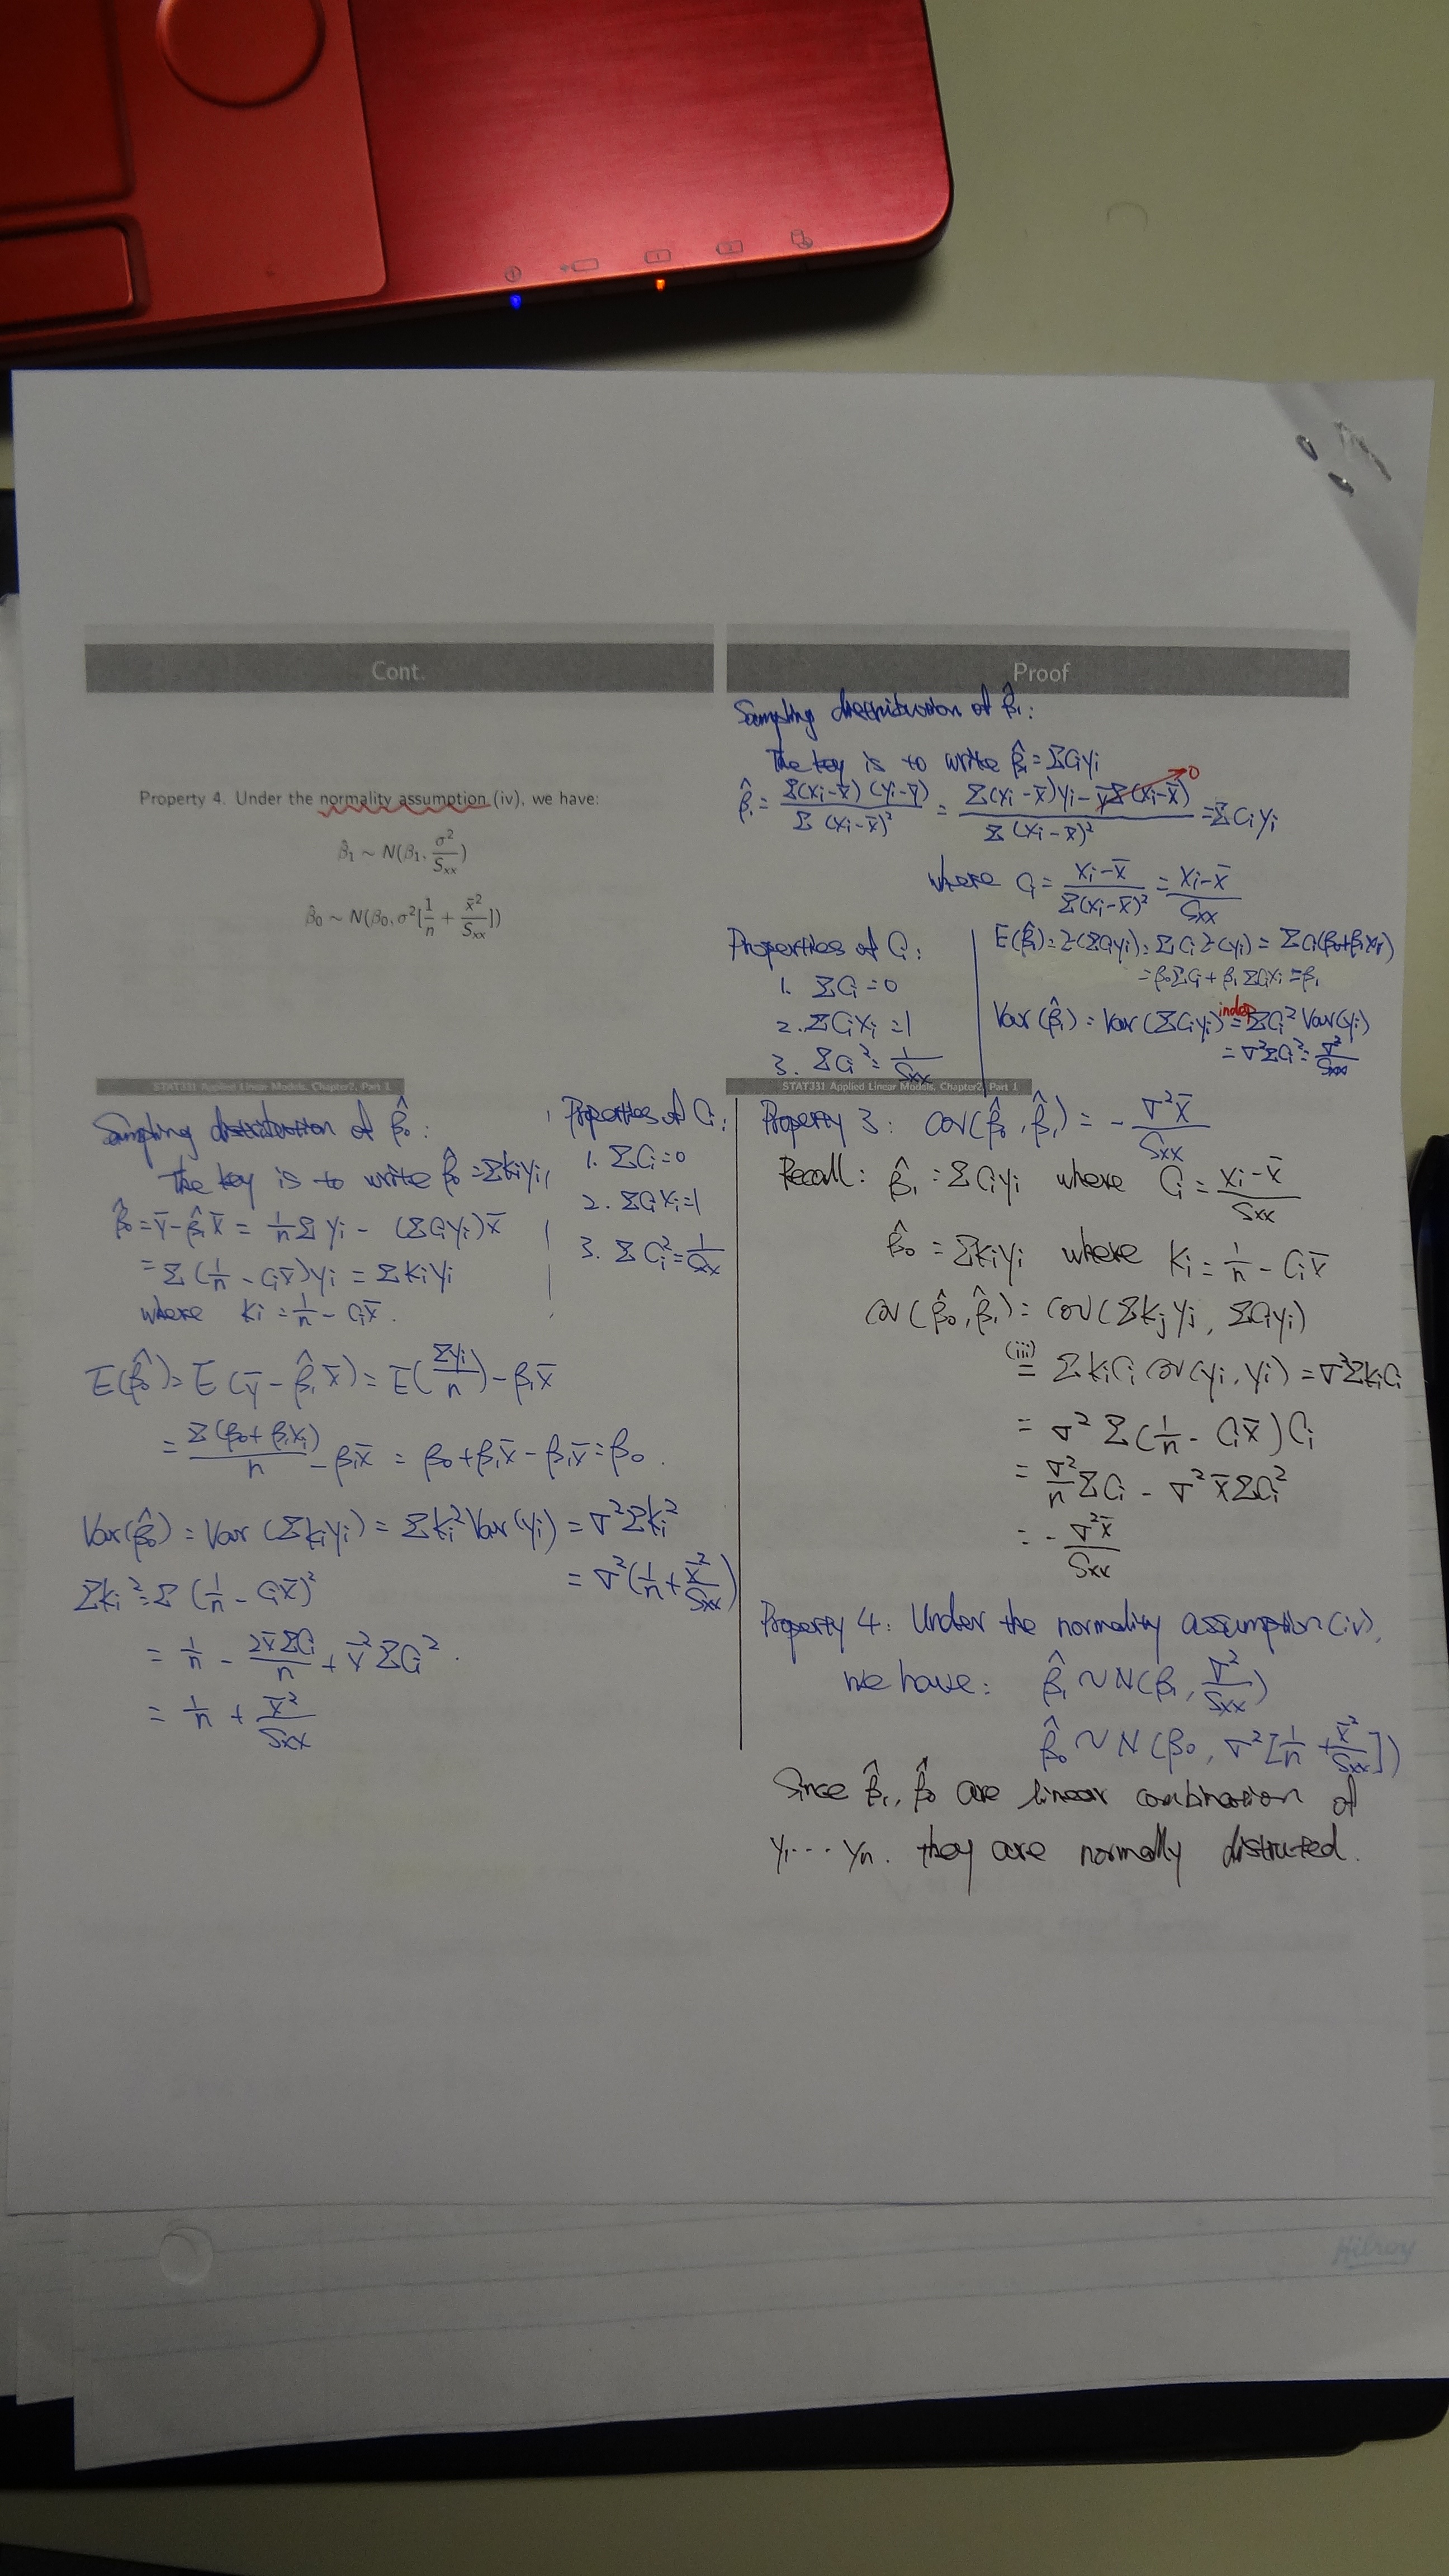 Cont.
Property 4. Under the normality assumption (iv), we have:
β̂₁ ~ N(β₁, σ²/Sxx)
β̂₀ ~ N(β₀, σ²[1/n + x̄²/Sxx])
Proof
Sampling distribution of β̂₁:
The key is to write β̂₁ = ΣCiyi
β̂₁ = Σ(xi-x̄)(yi-ȳ)/Σ(xi-x̄)² = (Σ(xi-x̄)yi - ȳΣ(xi-x̄))/Σ(xi-x̄)² = ΣCiyi
0
where Ci = (xi-x̄)/Σ(xi-x̄)² = (xi-x̄)/Sxx
Properties of Ci:
1. ΣCi = 0
2. ΣCixi = 1
3. ΣCi² = 1/Sxx
E(β̂₁) = E(ΣCiyi) = ΣCiE(yi) = ΣCi(β₀+β₁xi)
= β₀ΣCi + β₁ΣCixi = β₁
Var(β̂₁) = Var(ΣCiyi) = ΣCi² Var(yi)
indep
= σ²ΣCi² = σ²/Sxx
STAT331 Applied Linear Models, Chapter2, Part 1
STAT331 Applied Linear Models, Chapter2, Part 1
Sampling distribution of β̂₀:
The key is to write β̂₀ = Σkiyi,
β̂₀ = ȳ - β̂₁x̄ = 1/n Σyi - (ΣCiyi)x̄
= Σ(1/n - Cix̄)yi = Σkiyi
where ki = 1/n - Cix̄.
Properties of Ci:
1. ΣCi = 0
2. ΣCixi = 1
3. ΣCi² = 1/Sxx
E(β̂₀) = E(ȳ - β̂₁x̄) = E(Σyi/n) - β₁x̄
= Σ(β₀+β₁xi)/n - β₁x̄ = β₀+β₁x̄ - β₁x̄ = β₀.
Var(β̂₀) = Var(Σkiyi) = Σki² Var(yi) = σ²Σki²
= σ²(1/n + x̄²/Sxx)
Σki² = Σ(1/n - Cix̄)²
= 1/n - 2x̄ΣCi/n + x̄²ΣCi².
= 1/n + x̄²/Sxx
Property 3: cov(β̂₀, β̂₁) = - σ²x̄/Sxx
Recall: β̂₁ = ΣCiyi where Ci = (xi-x̄)/Sxx
β̂₀ = Σkiyi where Ki = 1/n - Cix̄
cov(β̂₀, β̂₁) = cov(Σkjyj, ΣCiyi)
(iii)
= ΣkiCi cov(yi, yi) = σ²ΣkiCi
= σ² Σ(1/n - Cix̄)Ci
= σ²/n ΣCi - σ² x̄ΣCi²
= - σ²x̄/Sxx
Property 4: Under the normality assumption (iv),
we have: β̂₁ ~ N(β₁, σ²/Sxx)
β̂₀ ~ N(β₀, σ²[1/n + x̄²/Sxx])
Since β̂₁, β̂₀ are linear combination of
y₁ ... yn. they are normally distruted.
Hilroy